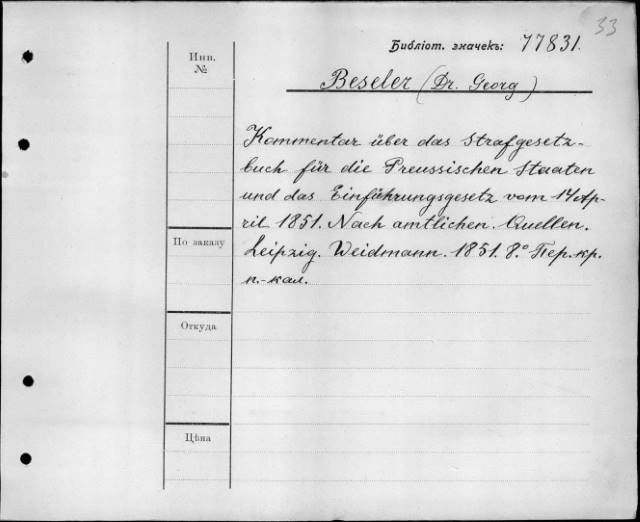 33
Библіот. значекъ: 77831.
Инв.
№
Beseler (Dr. Georg)
Kommentar über das Strafgesetz-
buch für die Preussischen Staaten
und das Einführungsgesetz vom 14 Ap-
ril 1851. Nach amtlichen Quellen.
По заказу
Leipzig. Weidmann. 1851. 8.° Пер. кр.
п.-кал.
Откуда
Цѣна